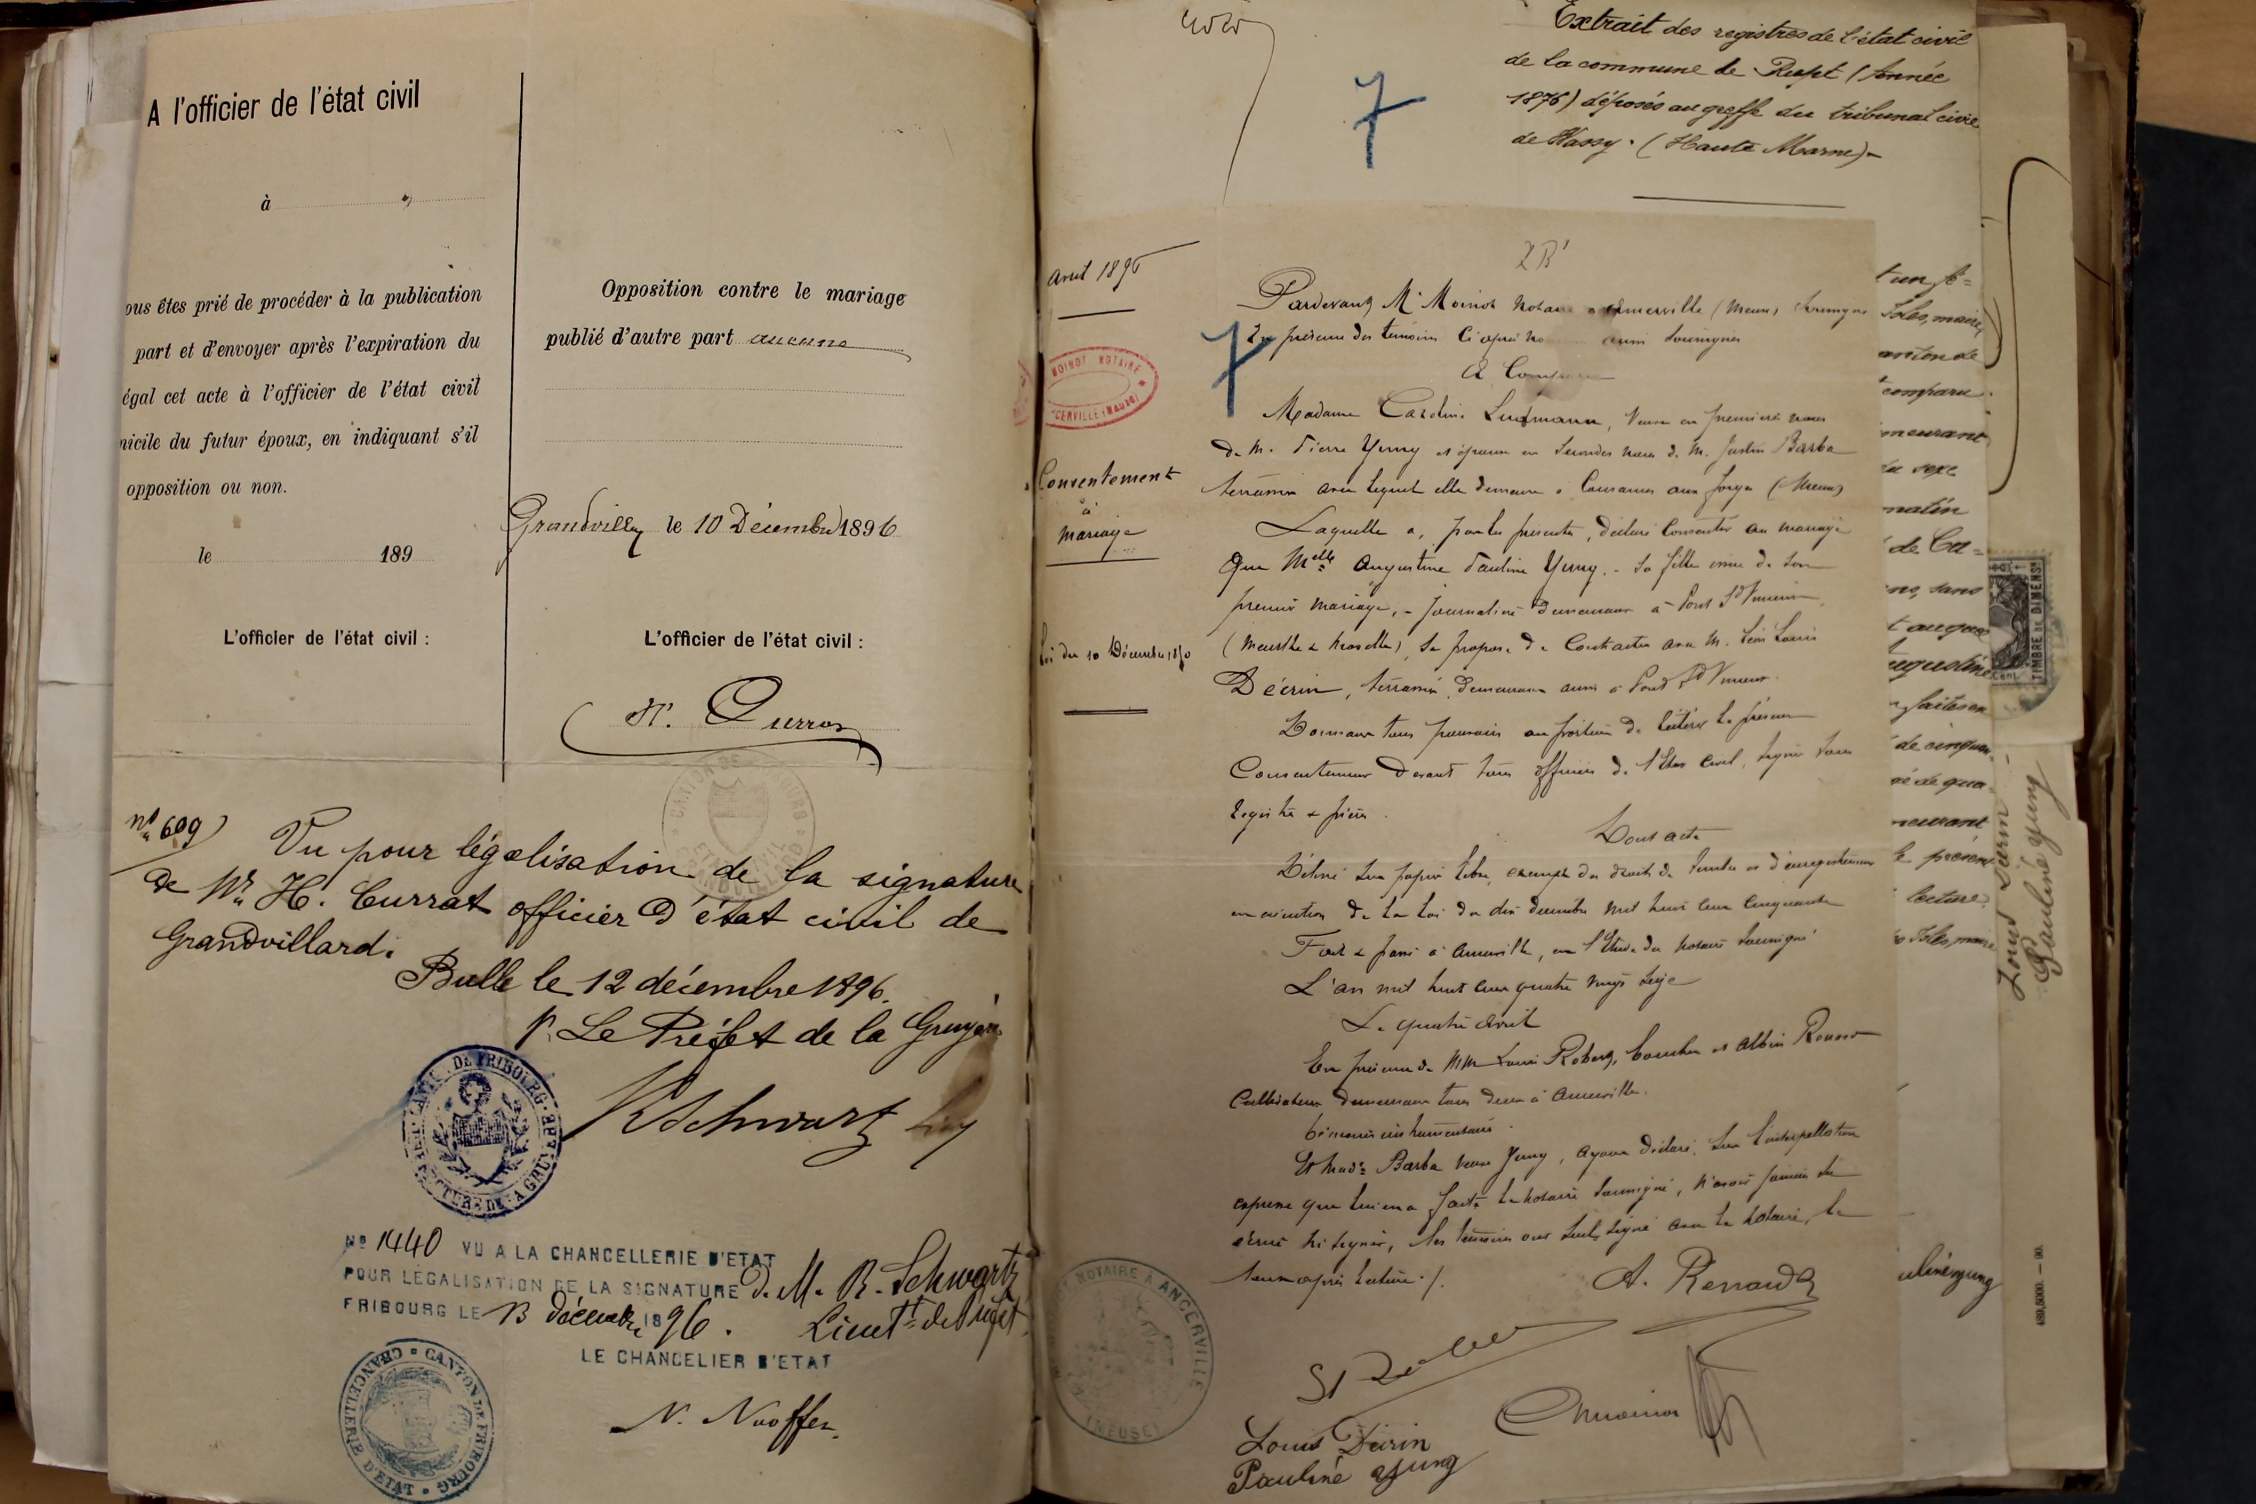 A l'officier de l'état civil
à
ous êtes prié de procéder à la publication
part et d'envoyer après l'expiration du
égal cet acte à l'officier de l'état civil
icile du futur époux, en indiquant s'il
opposition ou non.
le 189
L'officier de l'état civil :
Opposition contre le mariage
publié d'autre part aucune
Grandvillard le 10 Décembre 1896
L'officier de l'état civil :
H. Currat
No 609
Vu pour légalisation de la signature
de Mr H. Currat officier d'état civil de
Grandvillard.
Bulle le 12 décembre 1896.
Le Préfet de la Gruyère
Schwartz
No 1440 VU A LA CHANCELLERIE D'ETAT
POUR LÉGALISATION DE LA SIGNATURE de M. R. Schwartz
FRIBOURG LE 13 décembre 1896. Lieutt de Préfet
LE CHANCELIER D'ETAT
CANTON DE FRIBOURG CHANCELLERIE D'ETAT
Extrait des registres de l'état civil
de la commune de Rupt (Année
1876) déposés au greffe du tribunal civil
de Wassy. (Haute Marne)-
7
Avril 1896
7
MOINOT NOTAIRE
ANCERVILLE (MEUSE)
Consentement
à
mariage
Loi du 10 Décembre 1850
Pardevant Me Moinot notaire à Ancerville (Meuse) soussigné
En présence des témoins ci après nommés aussi soussignés
A Comparu
Madame Caroline Ludmann, Veuve en premières noces
de M. Pierre Yung et épouse en secondes noces de M. Justin Barba
terrassier avec lequel elle demeure à Cousances aux forges (Meuse)
Laquelle a, par les présentes, déclaré Consentir au mariage
que Melle Augustine Pauline Yung, sa fille issue de son
premier mariage, journalière demeurant à Pont St Vincent
(Meurthe & Moselle), se propose de Contracter avec M. Léon Louis
Décrin, terrassier, demeurant aussi à Pont St Vincent
Donnant tous pouvoirs au porteur de réitérer le présent
Consentement devant tous officiers de l'Etat Civil, signer tous
registres & pièces.
Dont acte
Délivré sur papier libre, exempt des droits de timbre et d'enregistrement
en exécution de la loi du dix décembre mil huit cent cinquante
Fait & passé à Ancerville, en l'Etude du notaire soussigné
L'an mil huit cent quatre vingt seize
Le quatre avril
En présence de MM Louis Robert, et Albin Renard
Cultivateur demeurant tous deux à Ancerville.
témoins instrumentaires.
Et Made Barba veuve Yung, ayant déclaré, sur l'interpellation
expresse que lui en a faite le notaire soussigné, n'avoir jamais su
écrire ni signer, les témoins ont seuls signé avec le notaire, le
tout après lecture ./.
A. Renard
NOTAIRE À ANCERVILLE
(MEUSE)
Louis Décrin
Pauline Yung
t un fe=
maire,
anton de
comparu
meurant
du sexe
matin
de Ca=
sans
faites en
de cinquan
de qua
meurant
le présent
lecture
maire
TIMBRE DE DIMENSn
Pauline Yung